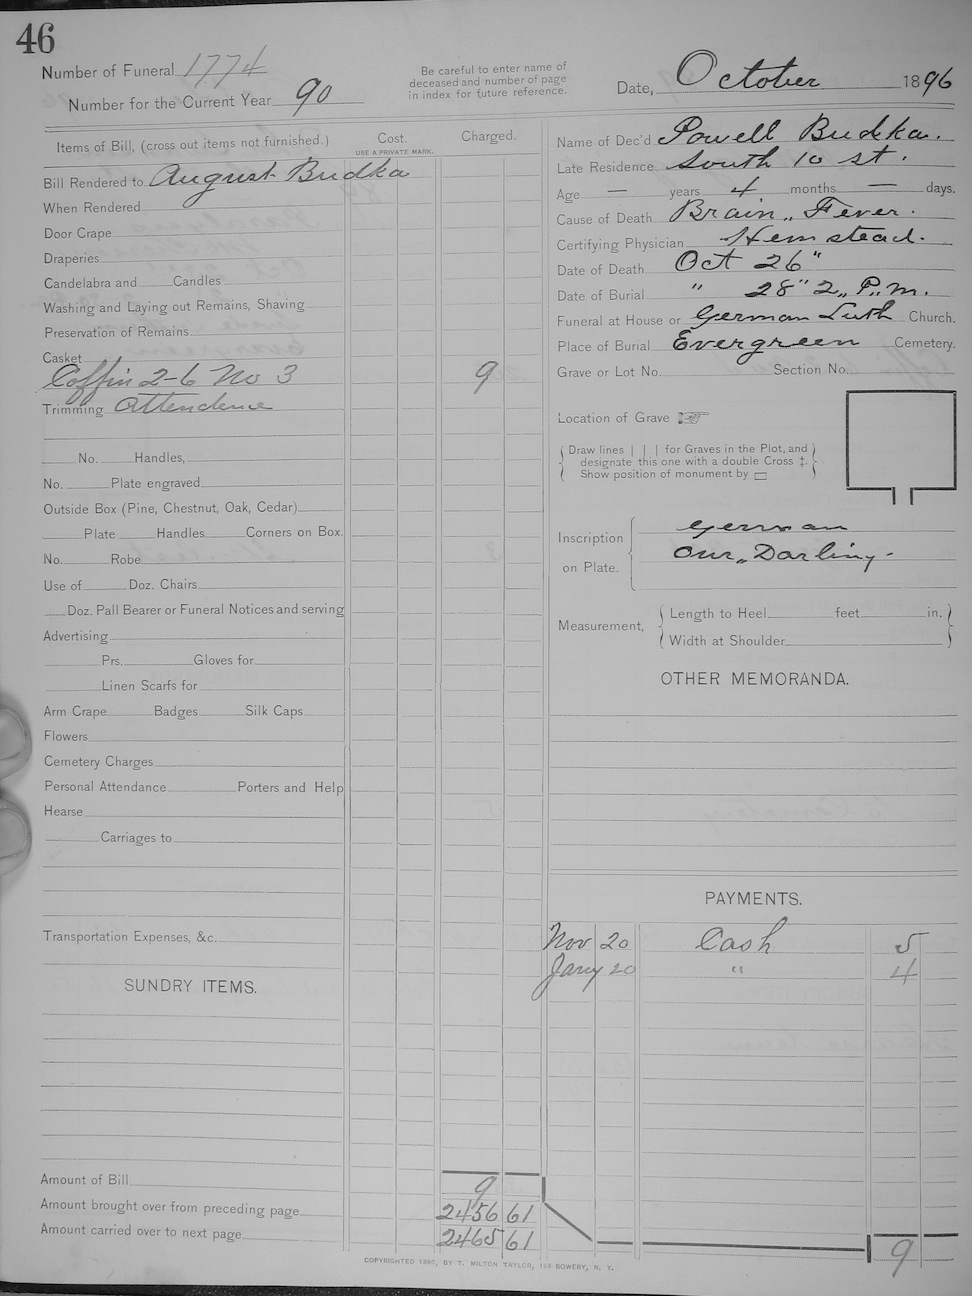 46
Number of Funeral 1774
Number for the Current Year 90
Be careful to enter name of
deceased and number of page
in index for future reference.
Date, October 1896
Items of Bill, (cross out items not furnished.)
Cost.
USE A PRIVATE MARK.
Charged.
Bill Rendered to August Budka
When Rendered
Door Crape
Draperies
Candelabra and Candles
Washing and Laying out Remains, Shaving
Preservation of Remains
Casket
Coffin 2-6 No 3 9
Trimming Attendence
No. Handles,
No. Plate engraved
Outside Box (Pine, Chestnut, Oak, Cedar)
Plate Handles Corners on Box.
No. Robe
Use of Doz. Chairs
Doz. Pall Bearer or Funeral Notices and serving
Advertising
Prs. Gloves for
Linen Scarfs for
Arm Crape Badges Silk Caps
Flowers
Cemetery Charges
Personal Attendance Porters and Help
Hearse
Carriages to
Transportation Expenses, &c.
SUNDRY ITEMS.
Amount of Bill 9
Amount brought over from preceding page 2456 61
Amount carried over to next page 2465 61
Name of Dec'd Powell Budka.
Late Residence South 10 st.
Age — years 4 months — days.
Cause of Death Brain ,, Fever.
Certifying Physician Hemstead.
Date of Death Oct 26"
Date of Burial " 28" 2,, P,,m.
Funeral at House or German Luth Church.
Place of Burial Evergreen Cemetery.
Grave or Lot No. Section No.
Location of Grave ☞
Draw lines | | | for Graves in the Plot, and
designate this one with a double Cross ‡.
Show position of monument by ▭
Inscription
on Plate.
German
Our ,, Darling -
Measurement,
Length to Heel feet in.
Width at Shoulder
OTHER MEMORANDA.
PAYMENTS.
Nov 20 Cash 5
Jany 20 " 4
9
COPYRIGHTED 1890, BY T. MILTON TAYLOR, 163 BOWERY, N. Y.